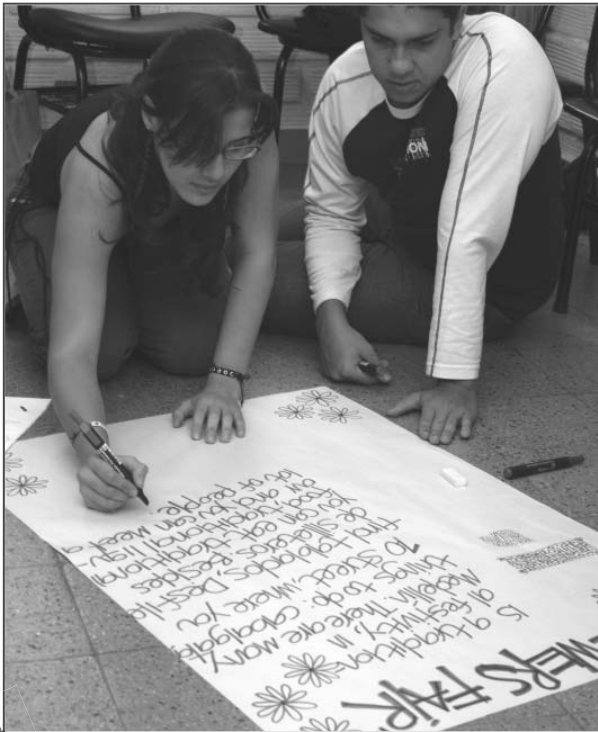 WERS FAIR
is a tradition-
al festivity, in
Medellín. There are many
things to do: cabalgata,
70 street, where you
find tablados. Desfile
de silleteros. Besides
you can eat traditional
food, traditional liqu
or and you can meet a
lot of people
ON